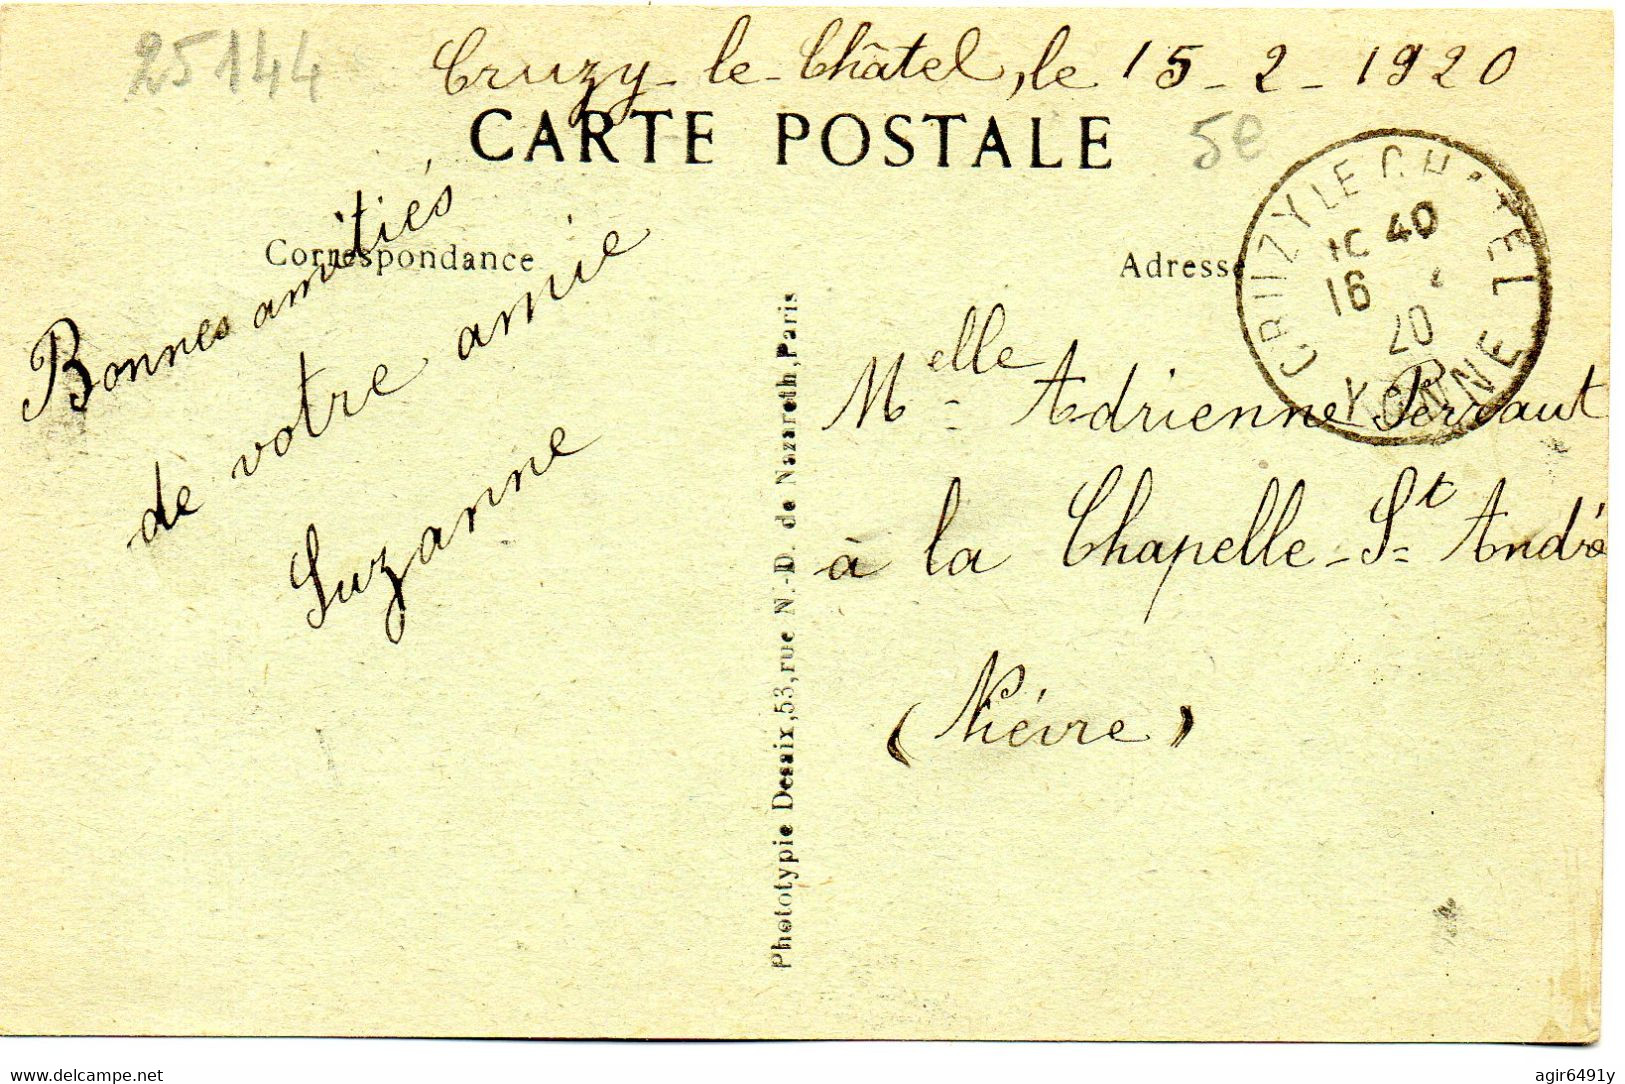 25144
Cruzy-le-Châtel, le 15-2-1920
CARTE POSTALE
5e
Correspondance
Adresse
Bonnes amitiés
de votre amie
Suzanne
CRUZY LE CHATEL
10 40
16
20
YONNE
Melle Adrienne Perraut
à la Chapelle-St André
(Nièvre)
Phototypie Desaix, 53, rue N.-D. de Nazareth, Paris
www.delcampe.net
agir6491y